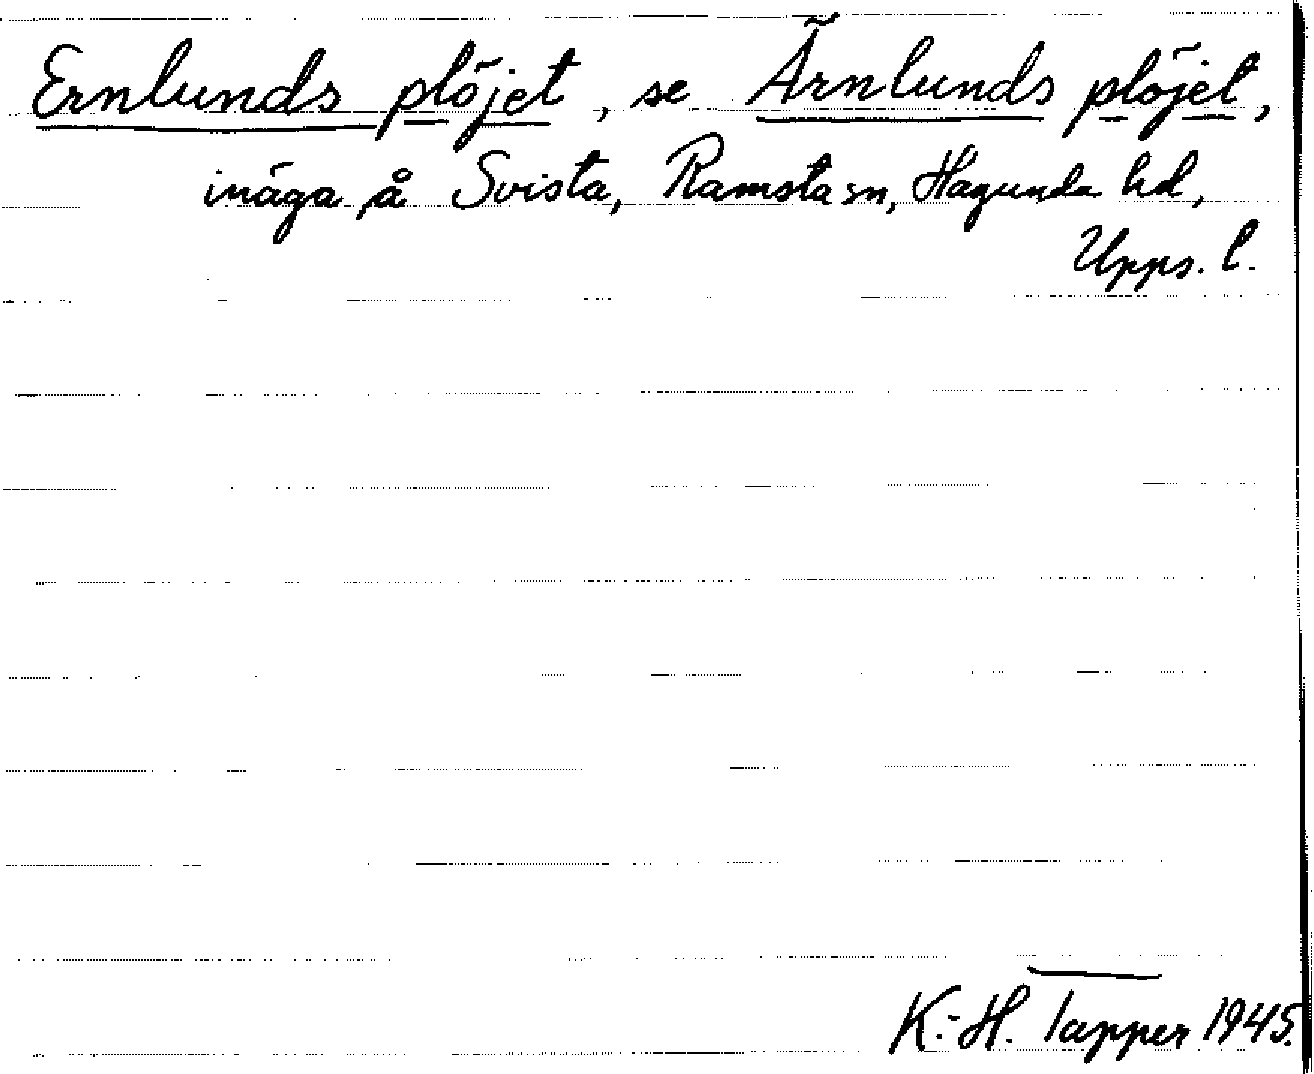 Ernlunds plöjet, se Ärnlunds plöjet,
inäga å Svista, Ramsta sn, Hagunda hd,
Upps. l.
K.-H. Tapper 1945.